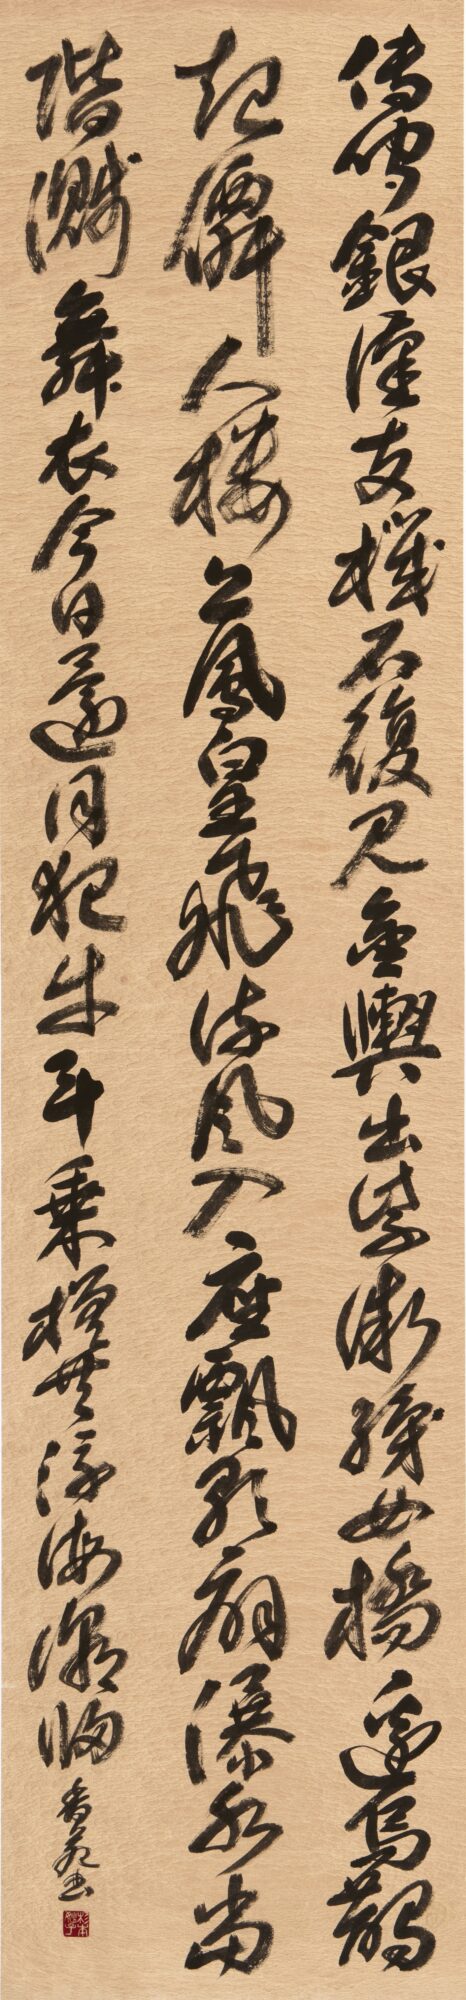 傳聞銀漢支機石復見金輿出紫微織女橋邊烏鵲
起僊人樓上鳳皇飛流風入座飄歌扇瀑水當
階濺舞衣今日還同犯牛斗乘槎共泛海潮歸
香苑書